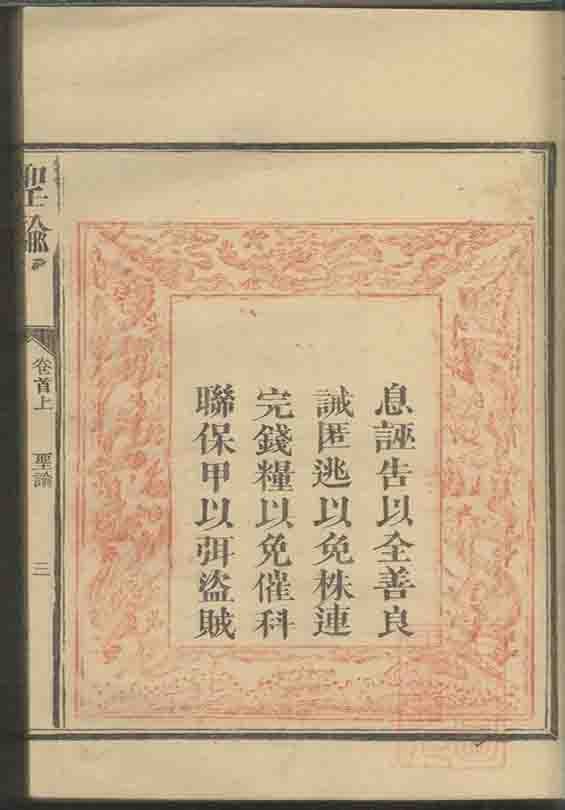 息誣告以全善良
誡匿逃以免株連
完錢糧以免催科
聯保甲以弭盜賊
卷首上
聖諭
三